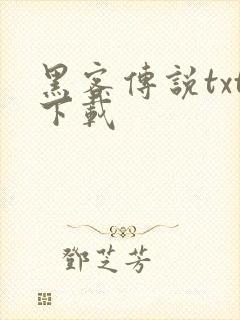 黑客傳說txt
下載
鄧芝芳